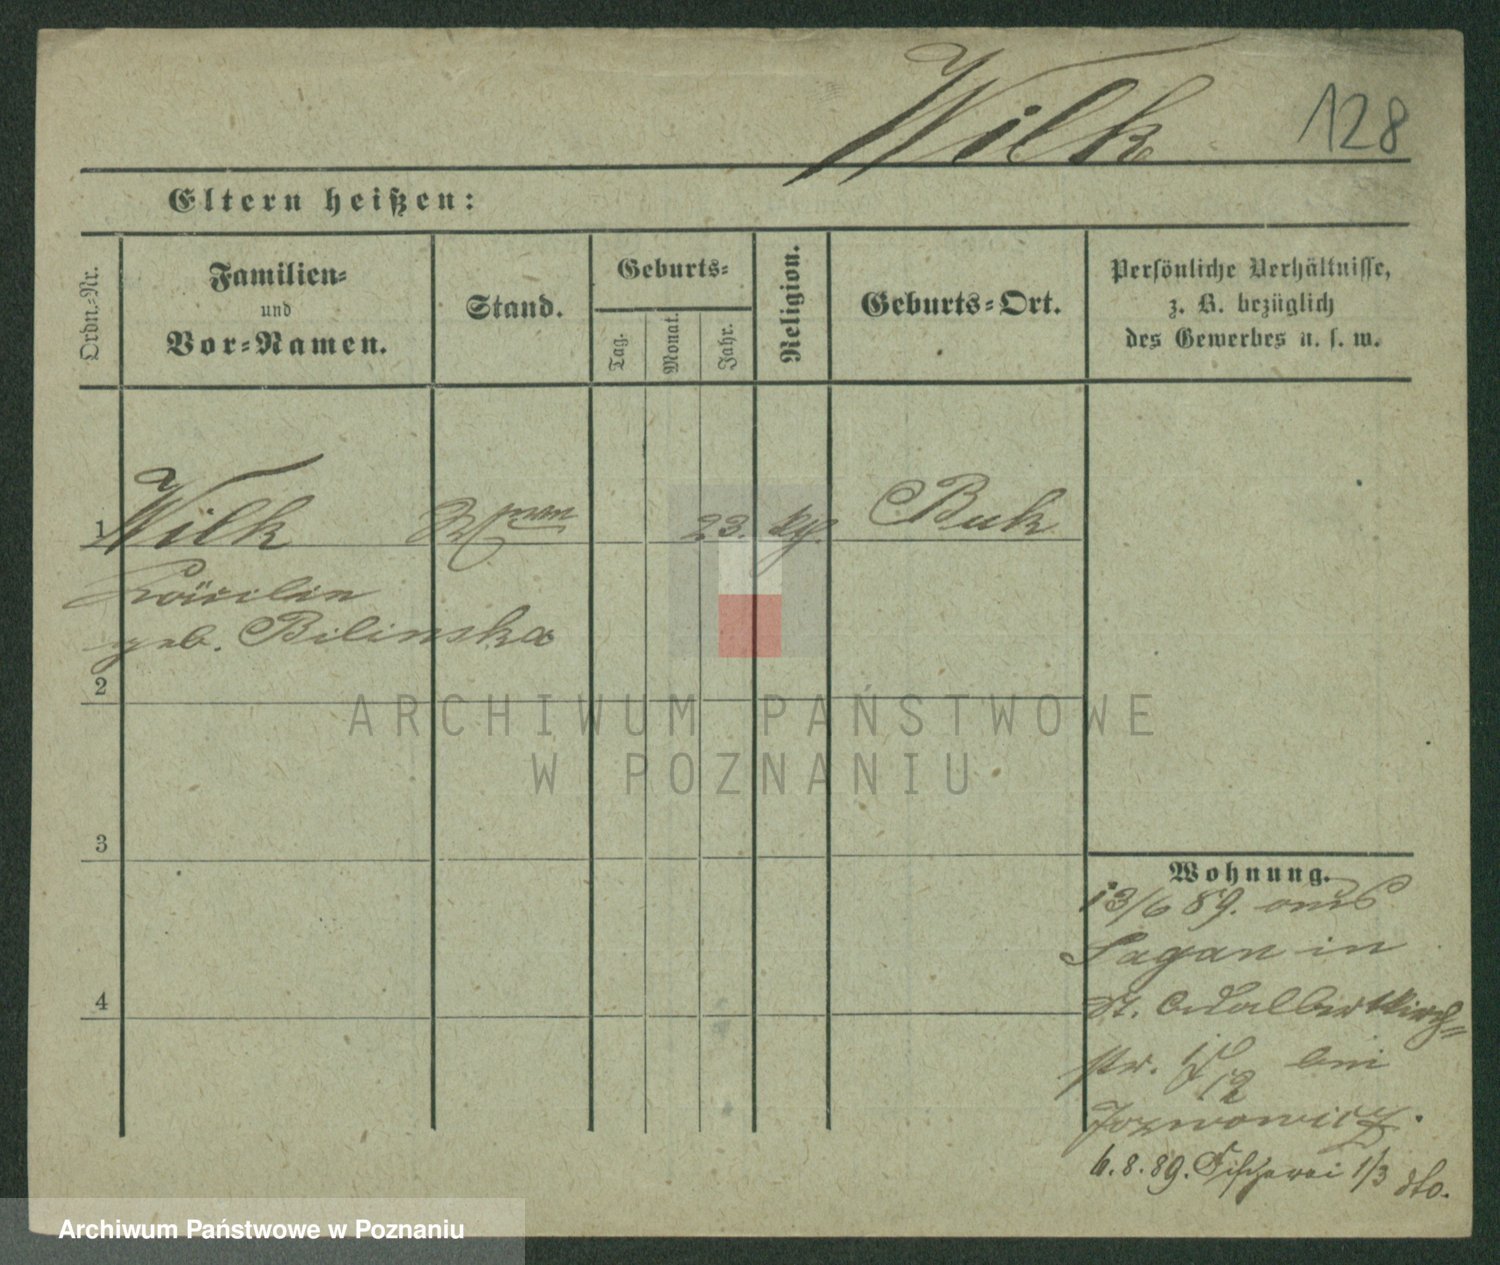 Wilk 128
Eltern heißen:
Ordn.-Nr.
Familien-
und
Vor-Namen.
Stand.
Geburts-
Tag.
Monat.
Jahr.
Religion.
Geburts-Ort.
Persönliche Verhältnisse,
z. B. bezüglich
des Gewerbes u. s. w.
1 Wilk 23. Buk
geb. Bilinska
2
3
4
ARCHIWUM PAŃSTWOWE
W POZNANIU
Wohnung.
13/6 89. aus
Sagan in
St. Adalbertkirch-
str. bei
6.8.89. Fischerei 1/3 dto.
Archiwum Państwowe w Poznaniu